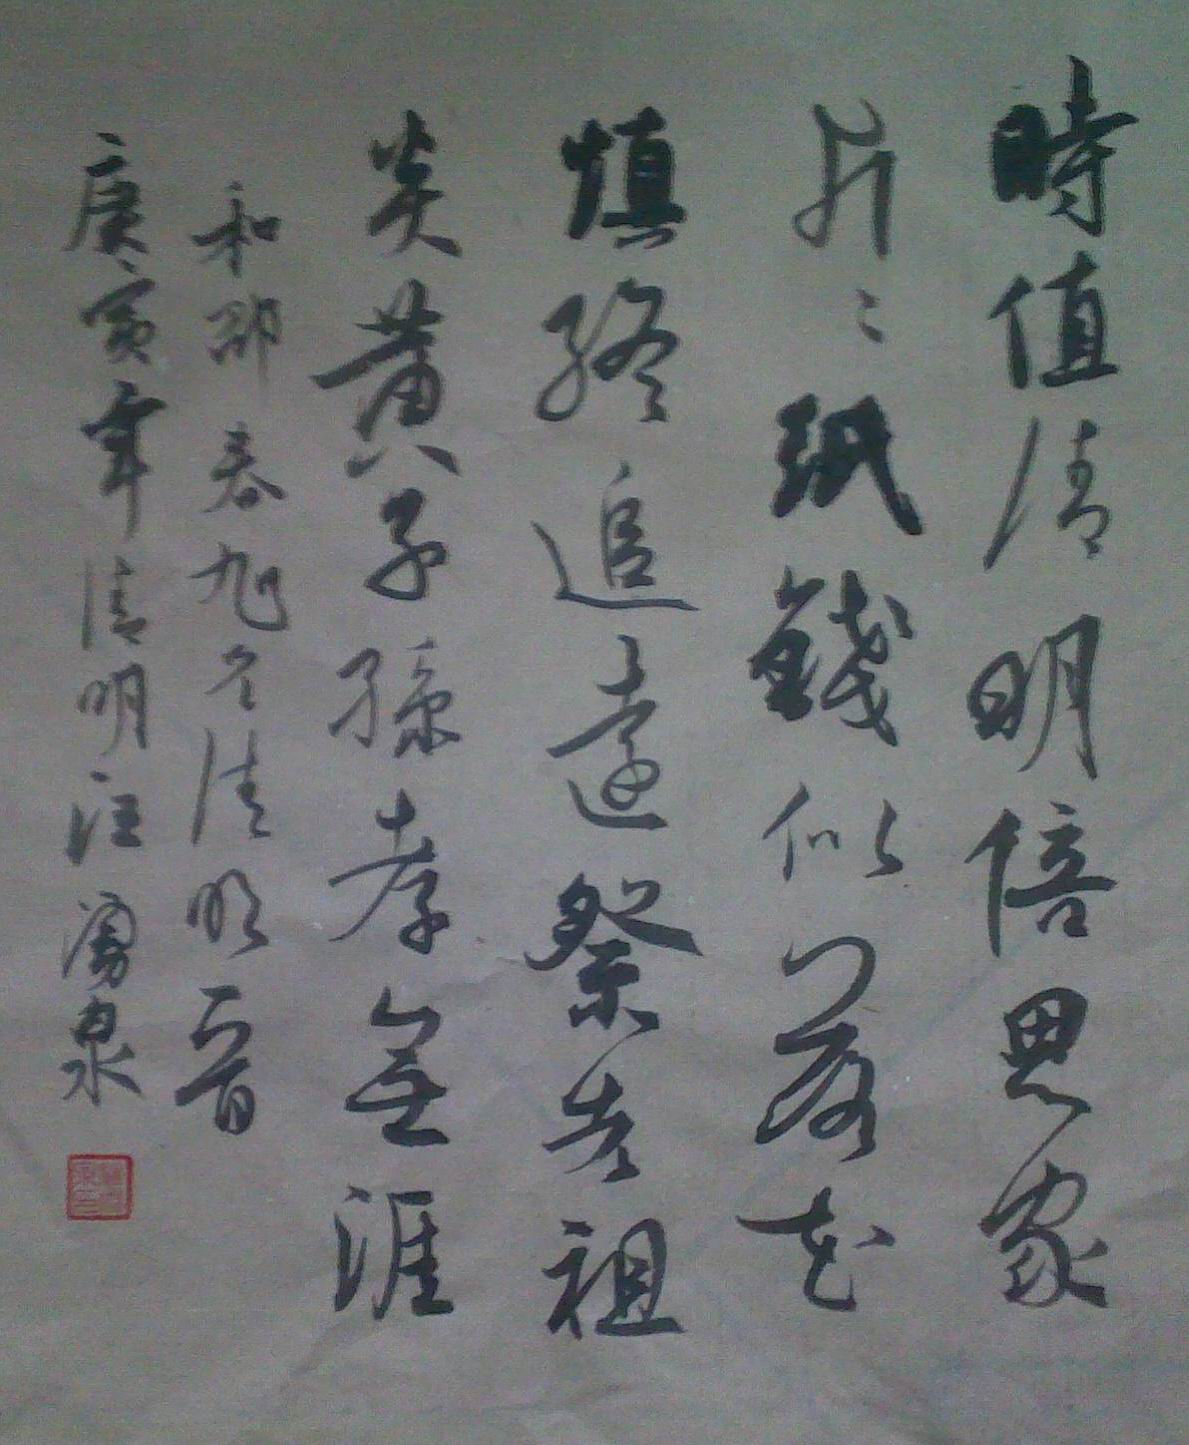 時值清明倍思家
片〻紙錢似落花
慎終追遠祭考祖
炎黄子孫孝無涯
和邵春旭君清明一首
庚寅年清明汪湧泉